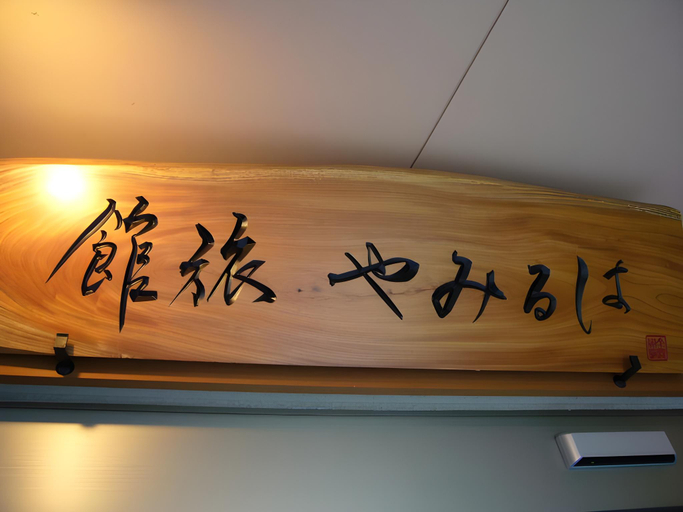 はるみや旅館